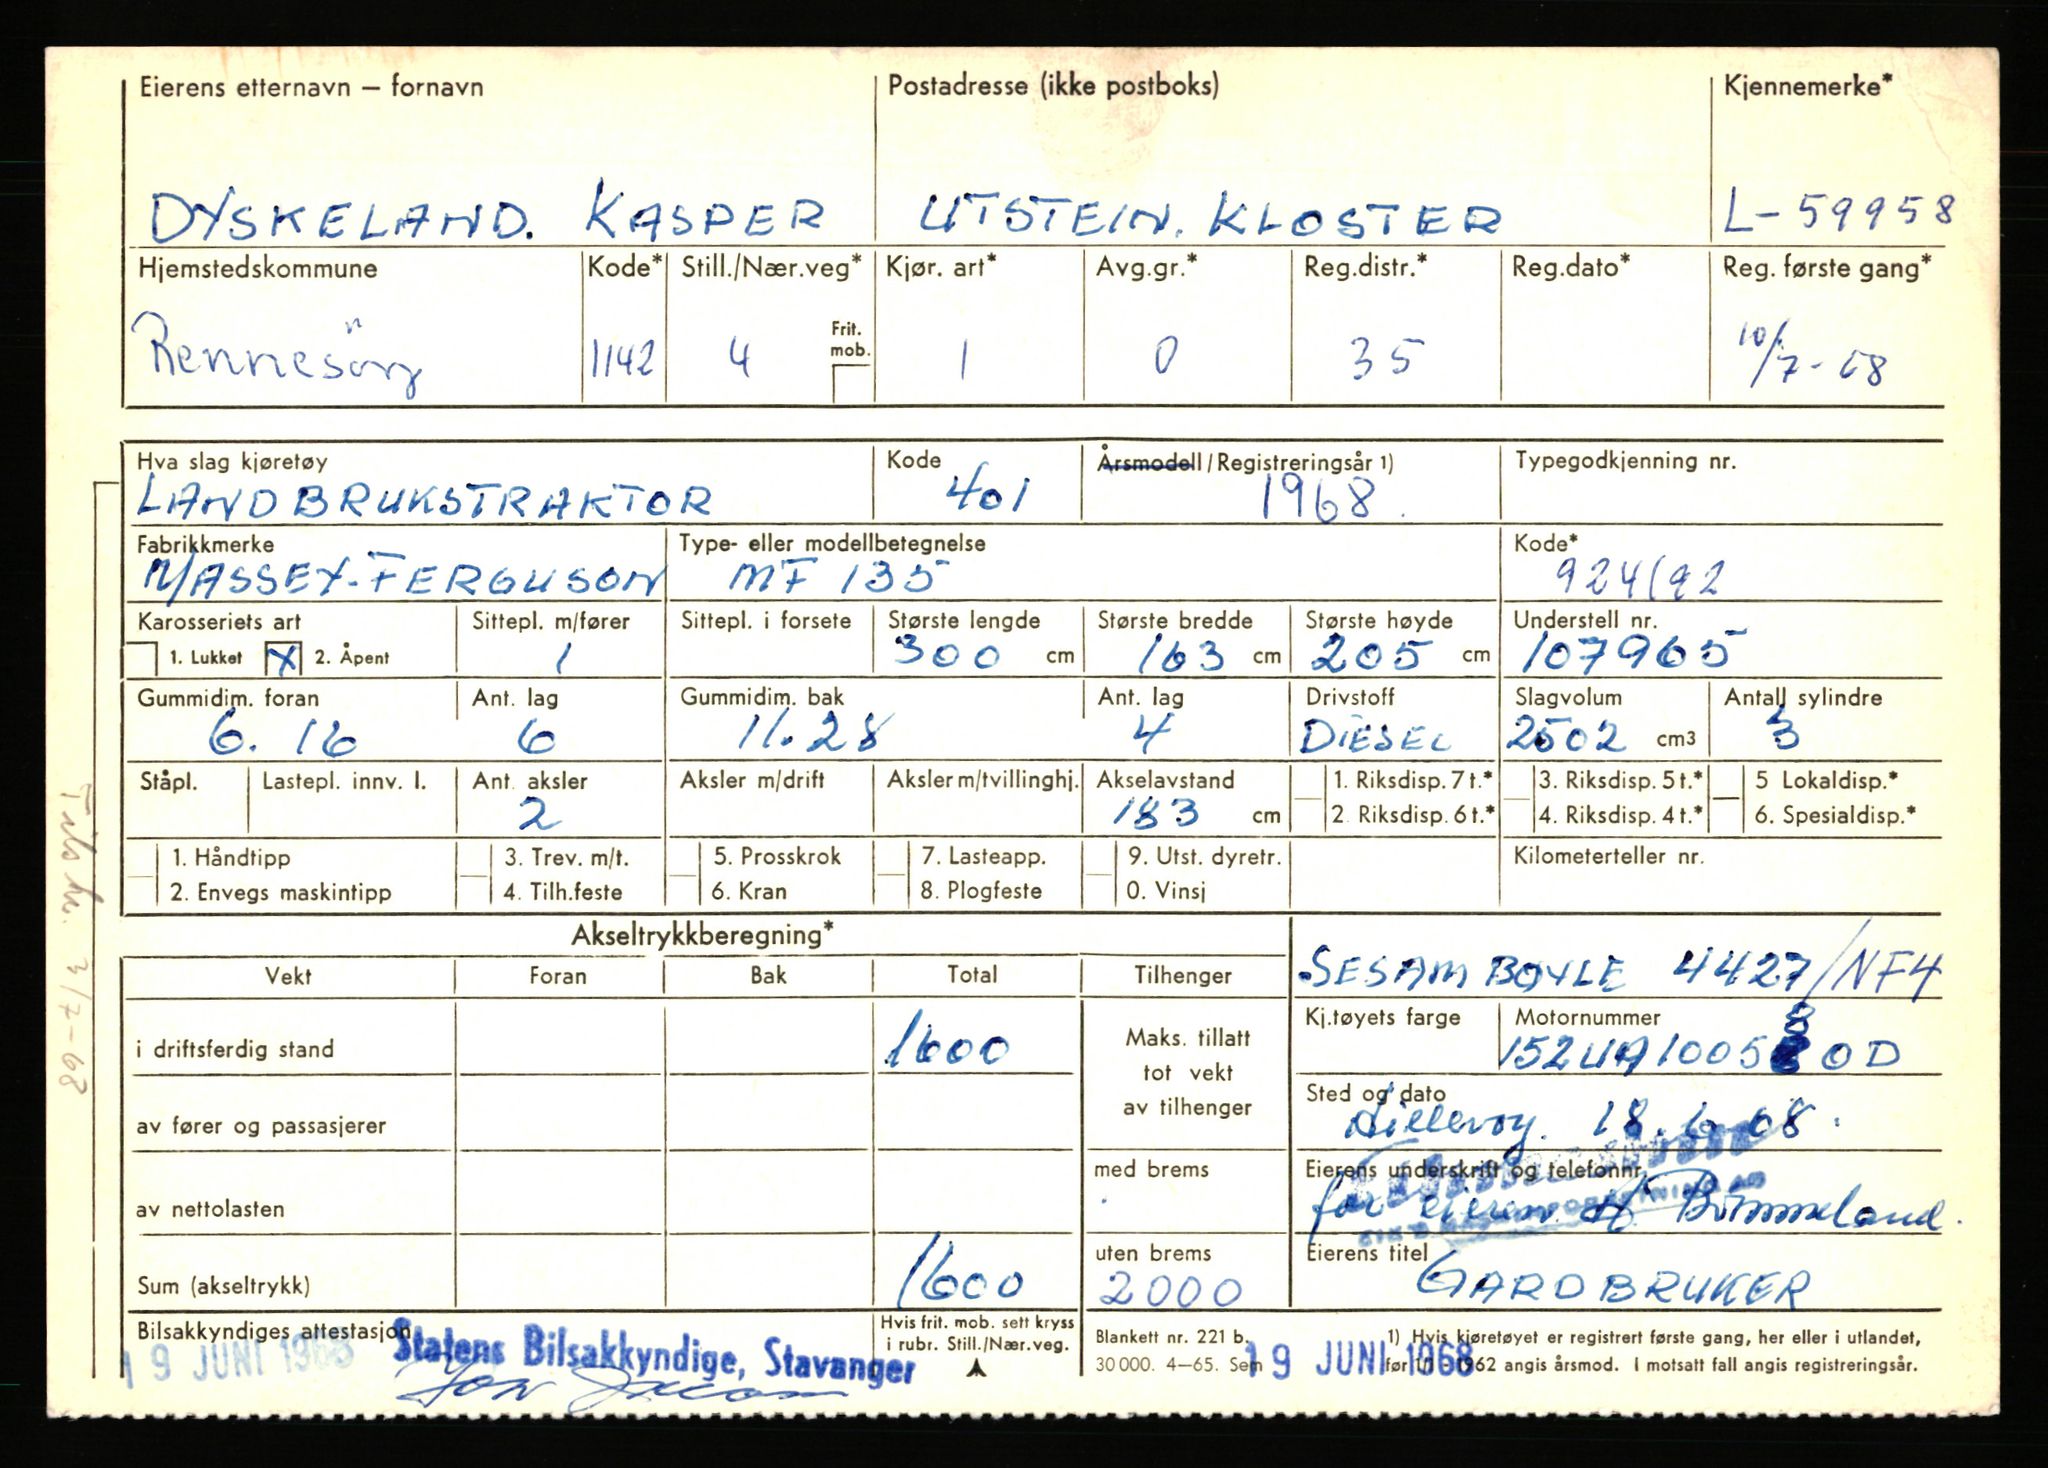 Eierens etternavn – fornavn Postadresse (ikke postboks) Kjennemerke*
DYSKELAND. KASPER UTSTEIN. KLOSTER L-59958
Hjemstedskommune Kode* Still./Nær.veg* Kjør. art* Avg.gr.* Reg.distr.* Reg.dato* Reg. første gang*
Frit. mob.
Rennesöy 1142 4 1 0 35 10/7-68
Hva slag kjøretøy Kode Årsmodell/Registreringsår 1) Typegodkjenning nr.
LANDBRUKSTRAKTOR 401 1968.
Fabrikkmerke Type- eller modellbetegnelse Kode*
MASSEY-FERGUSON MF 135 924/92
Karosseriets art Sittepl. m/fører Sittepl. i forsete Største lengde Største bredde Største høyde Understell nr.
1. Lukket X 2. Åpent 1 300 cm 163 cm 205 cm 107965
Gummidim. foran Ant. lag Gummidim. bak Ant. lag Drivstoff Slagvolum Antall sylindre
6. 16 6 11.28 4 DIESEL 2502 cm3 3
Ståpl. Lastepl. innv. l. Ant. aksler Aksler m/drift Aksler m/tvillinghj. Akselavstand 1. Riksdisp. 7 t.* 3. Riksdisp. 5 t.* 5 Lokaldisp.*
2 183 cm 2. Riksdisp. 6 t.* 4. Riksdisp. 4 t.* 6. Spesialdisp.*
1. Håndtipp 3. Trev. m/t. 5. Prosskrok 7. Lasteapp. 9. Utst. dyretr. Kilometerteller nr.
2. Envegs maskintipp 4. Tilh.feste 6. Kran 8. Plogfeste 0. Vinsj
Akseltrykkberegning*
SESAM BØYLE 4427/NF4
Vekt Foran Bak Total Tilhenger
Kj.tøyets farge Motornummer
i driftsferdig stand 1600 Maks. tillatt tot vekt av tilhenger
152UA100580D
Sted og dato
av fører og passasjerer
18.6 68.
av nettolasten med brems Eierens underskrift og telefonnr.
for eieren
Sum (akseltrykk) 1600 uten brems 2000 Eierens titel
GARDBRUKER
Bilsakkyndiges attestasjon Hvis frit. mob. sett kryss i rubr. Still./Nær.veg.
19 JUNI 1968 Statens Bilsakkyndige, Stavanger
Blankett nr. 221 b. 1) Hvis kjøretøyet er registrert første gang, her eller i utlandet,
30 000. 4–65. Sem 19 JUNI 1968 før 1/1-1962 angis årsmod. I motsatt fall angis registreringsår.
3/7-68